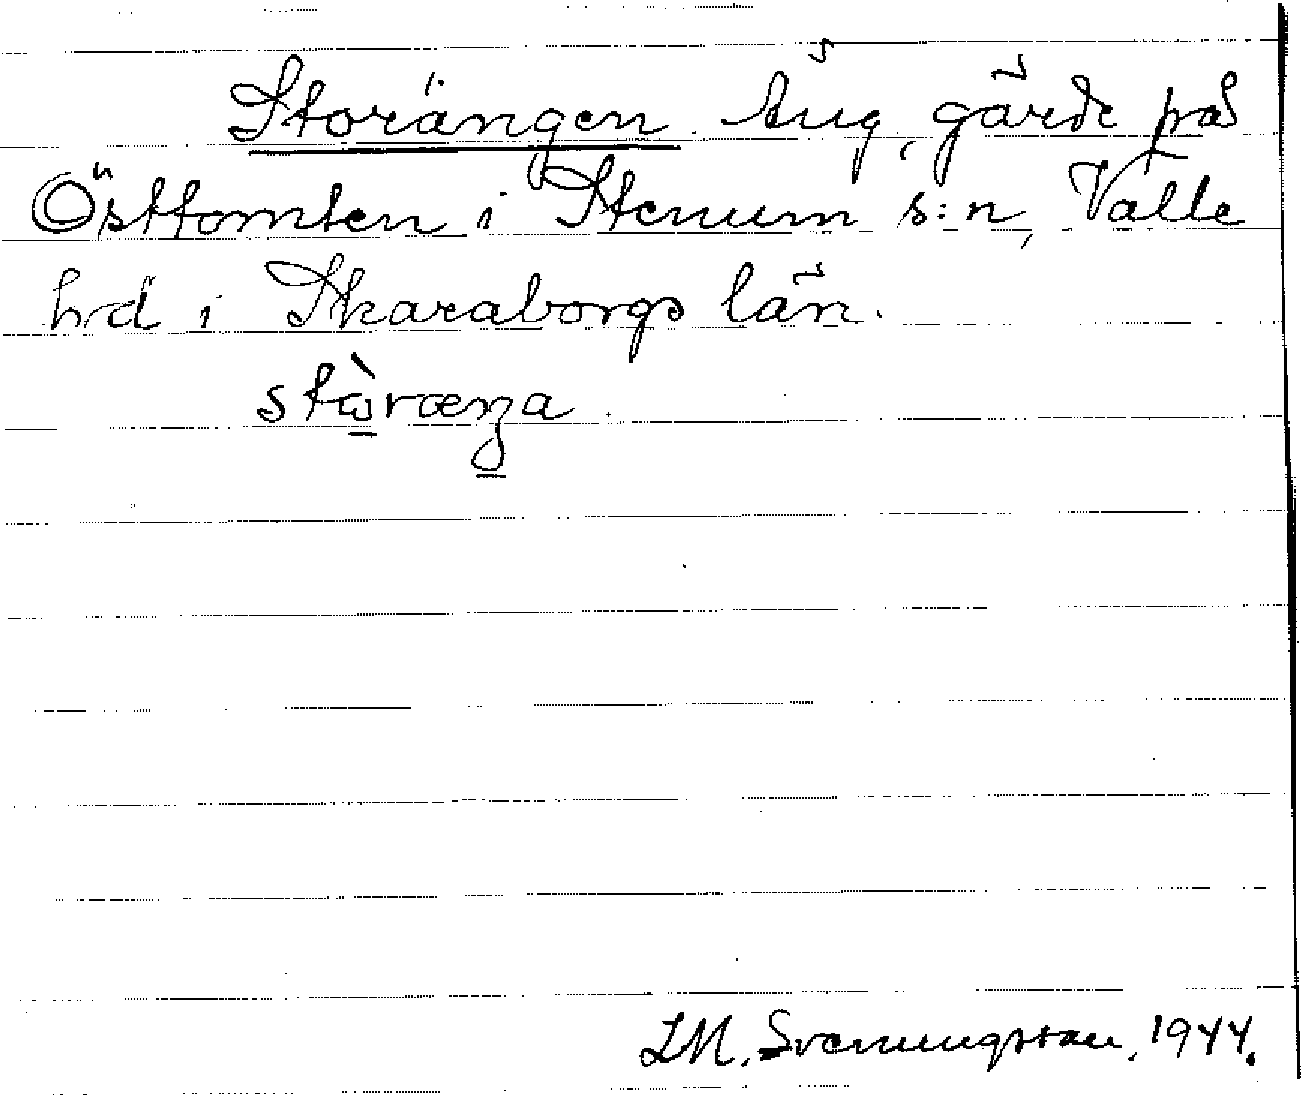 Storängen. Äng, gärde på
Östtomten i Stenum s:n, Valle
hd i Skaraborgs län.
stɷ̀ræŋa
LM. Svenungsson, 1944.